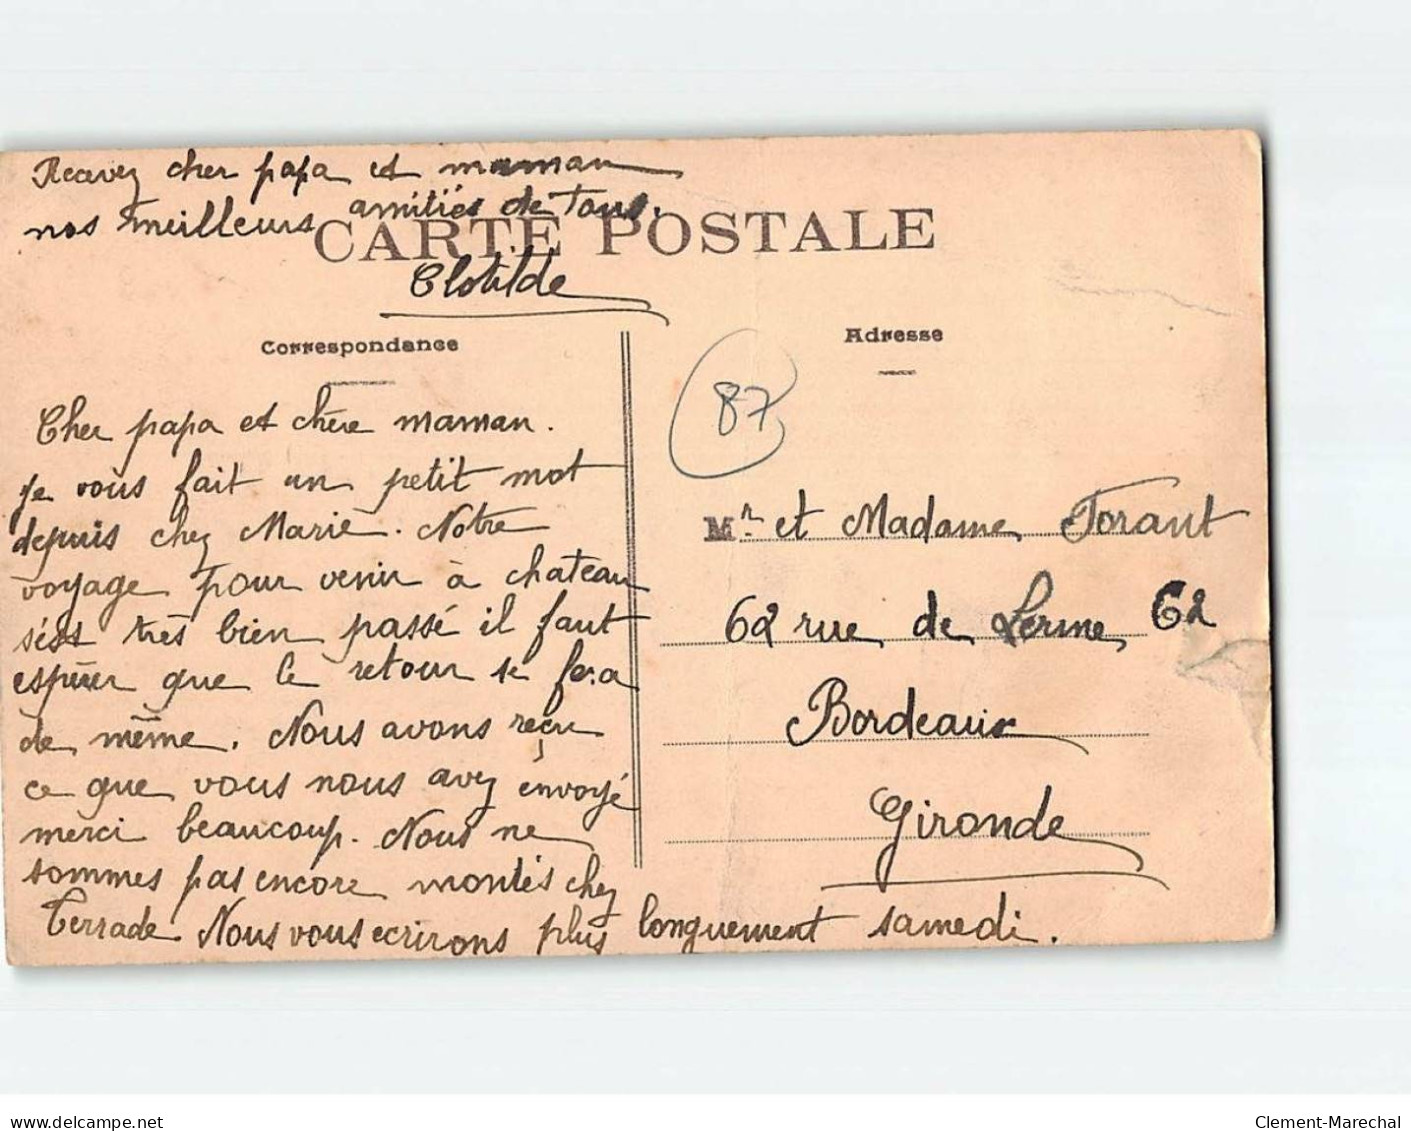 Recevez cher papa et maman
nos meilleurs amitiés de Tous.
CARTE POSTALE
Clotilde
Correspondance
Adresse
87
Cher papa et chère maman.
Je vous fait un petit mot
depuis chez Marie. Notre
voyage pour venir à chateau
s'est très bien passé il faut
espérer que le retour se fera
de même. Nous avons reçu
ce que vous nous avez envoyé
merci beaucoup. Nous ne
sommes pas encore montés chez
Terrade. Nous vous ecrirons plus longuement samedi.
Mr. et Madame Forant
62 rue de Lerme 62
Bordeaux
Gironde
www.delcampe.net
Clement-Marechal